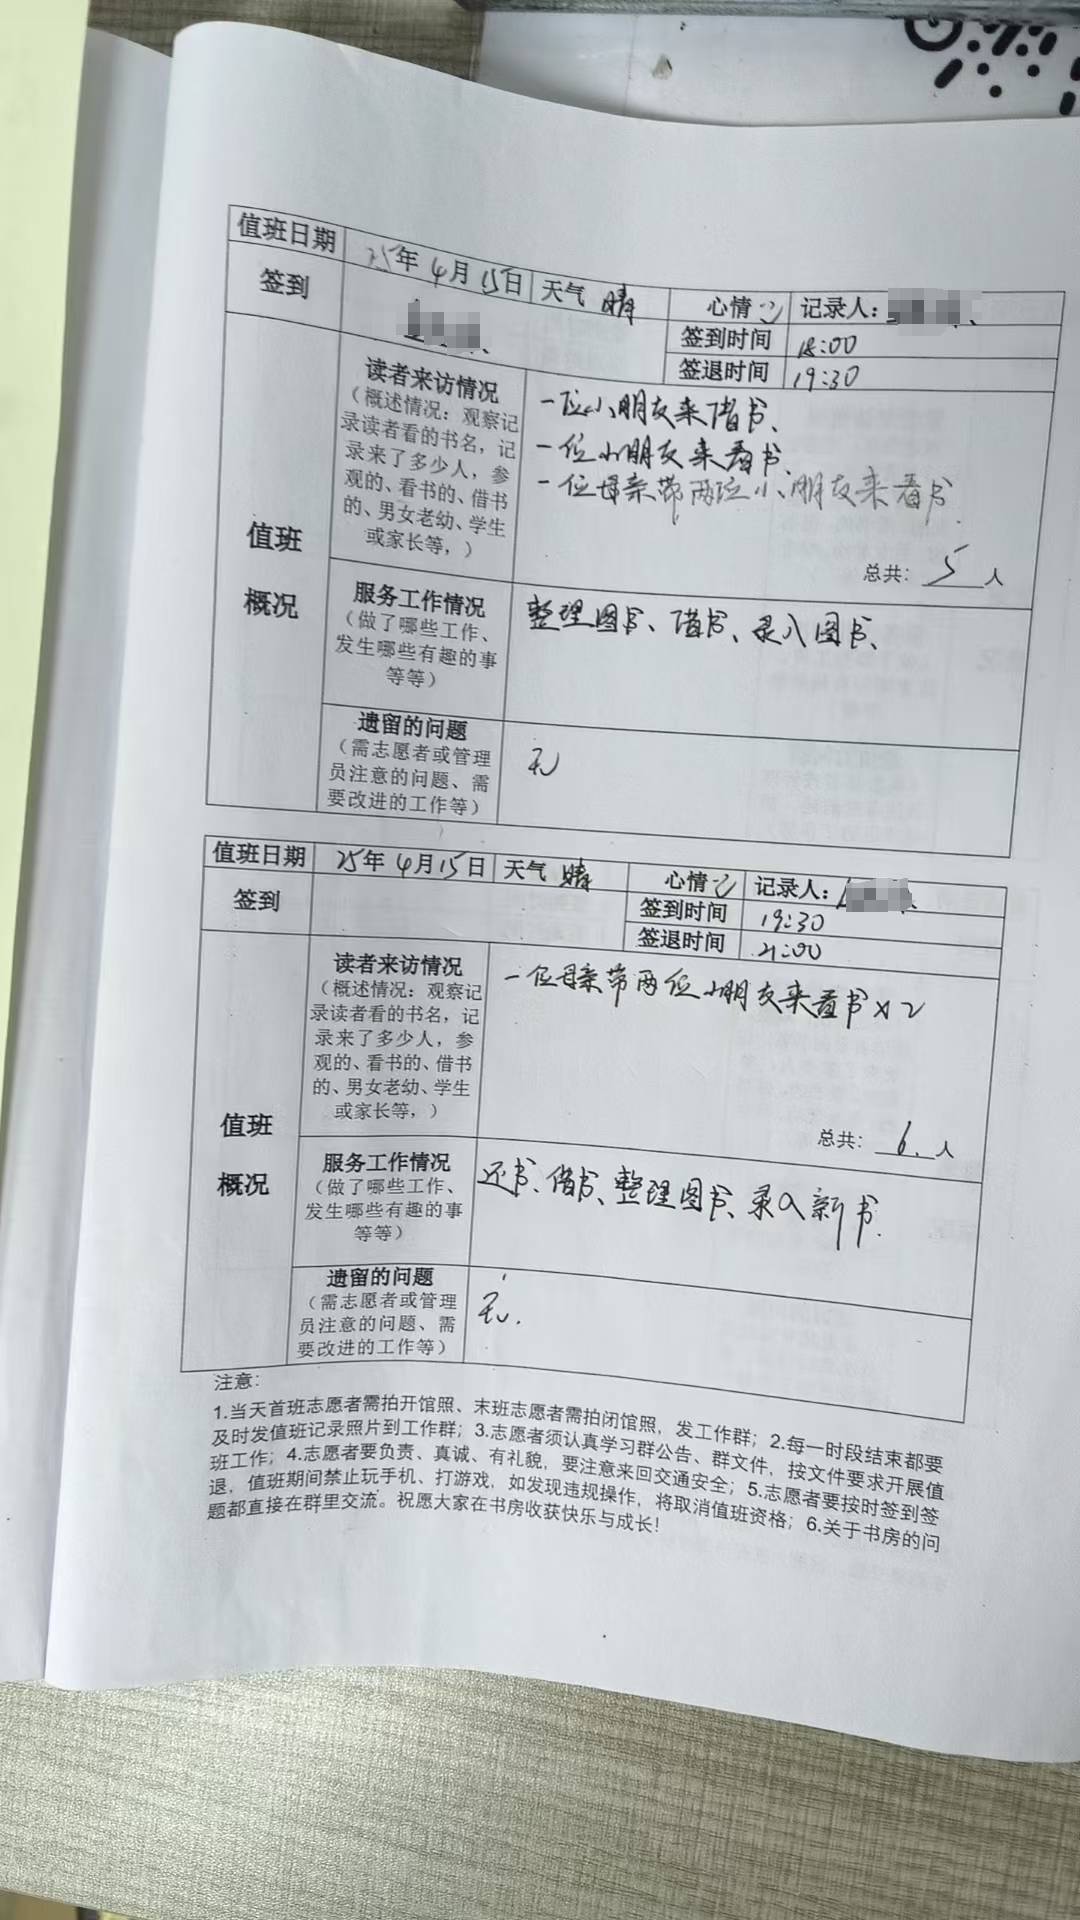 值班日期 25年4月15日 天气 晴 心情 记录人：
签到 签到时间 18:00
签退时间 19:30
值班
概况
读者来访情况
（概述情况：观察记
录读者看的书名，记
录来了多少人，参
观的、看书的、借书
的、男女老幼、学生
或家长等，）
一位小朋友来借书、
一位小朋友来看书、
一位母亲带两位小朋友来看书.
总共：5人
服务工作情况
（做了哪些工作、
发生哪些有趣的事
等等）
整理图书、借书、录入图书、
遗留的问题
（需志愿者或管理
员注意的问题、需
要改进的工作等）
无
值班日期 25年4月15日 天气 晴 心情 记录人：
签到 签到时间 19:30
签退时间 21:00
值班
概况
读者来访情况
（概述情况：观察记
录读者看的书名，记
录来了多少人，参
观的、看书的、借书
的、男女老幼、学生
或家长等，）
一位母亲带两位小朋友来看书×2
总共：6.人
服务工作情况
（做了哪些工作、
发生哪些有趣的事
等等）
还书、借书、整理图书、录入新书.
遗留的问题
（需志愿者或管理
员注意的问题、需
要改进的工作等）
无.
注意：
1.当天首班志愿者需拍开馆照、末班志愿者需拍闭馆照，发工作群；2.每一时段结束都要
及时发值班记录照片到工作群；3.志愿者须认真学习群公告、群文件，按文件要求开展值
班工作；4.志愿者要负责、真诚、有礼貌，要注意来回交通安全；5.志愿者要按时签到签
退，值班期间禁止玩手机、打游戏，如发现违规操作，将取消值班资格；6.关于书房的问
题都直接在群里交流。祝愿大家在书房收获快乐与成长！